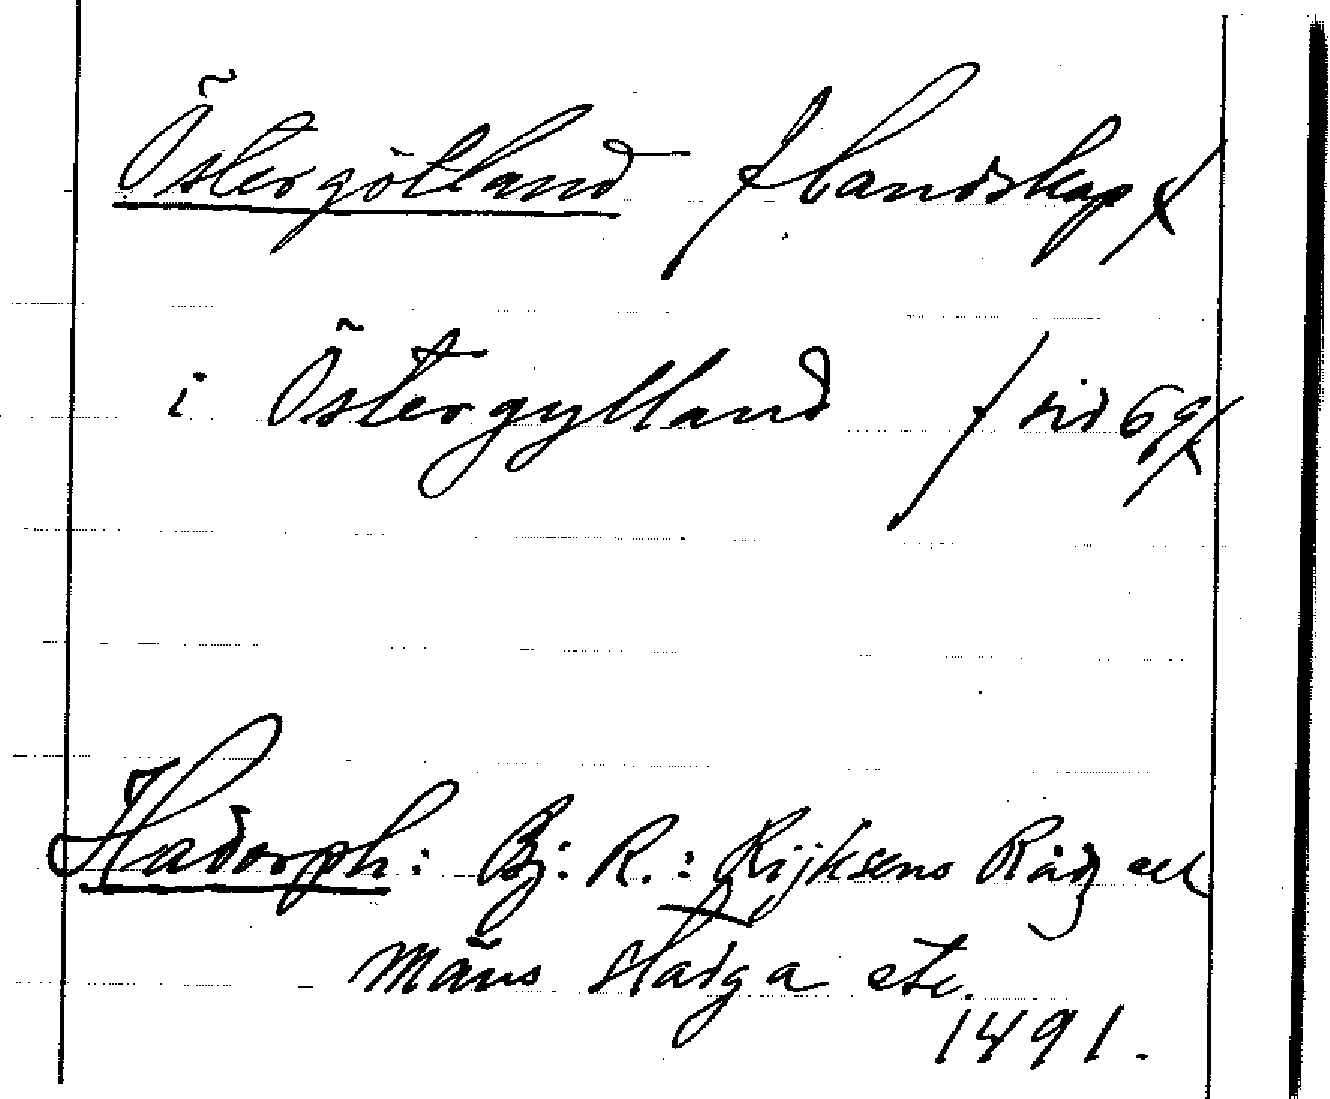 Östergötland / Landskap /
i Östergylland / sid 69 /
Hadorph: Bj: R.: Rijksens Rådz ell
Mäns stadga etc.
1491.